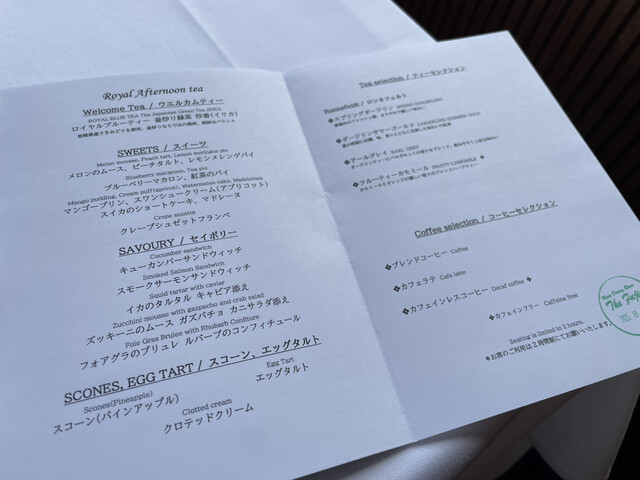 Royal Afternoon tea
Welcome Tea / ウエルカムティー
ROYAL BLUE TEA The Japanese Green Tea IRIKA
ロイヤルブルーティー 釜炒り緑茶 炒香(イリカ)
SWEETS / スイーツ
Melon mousse, Peach tart, Lemon meringue pie
メロンのムース、ピーチタルト、レモンメレンゲパイ
Blueberry macaron, Tea pie
ブルーベリーマカロン、紅茶のパイ
Mango pudding, Cream puff(apricot), Watermelon cake, Madeleines
マンゴープリン、スワンシュークリーム(アプリコット)
スイカのショートケーキ、マドレーヌ
Crepe suzette
クレープシュゼットフランベ
SAVOURY / セイボリー
Cucumber sandwich
キューカンバーサンドウィッチ
Smoked Salmon Sandwich
スモークサーモンサンドウィッチ
Squid tartar with caviar
イカのタルタル キャビア添え
Zucchini mousse with gazpacho and crab salad
ズッキーニのムース ガズパチョ カニサラダ添え
Foie Gras Brulee with Rhubarb Confiture
フォアグラのブリュレ ルバーブのコンフィチュール
SCONES, EGG TART / スコーン、エッグタルト
Scones(Pineapple)
スコーン(パインアップル)
Egg Tart
エッグタルト
Clotted cream
クロテッドクリーム
Tea selection / ティーセレクション
Ronnefeldt / ロンネフェルト
❖スプリングダージリン SPRING DARJEELING
❖ダージリンサマーゴールド DARJEELING SUMMER GOLD
❖アールグレイ EARL GREY
❖フルーティーカモミール FRUITY CAMOMILE ❖
Coffee selection / コーヒーセレクション
❖ブレンドコーヒー Coffee
❖カフェラテ Cafe latte
❖カフェインレスコーヒー Decaf coffee ❖
❖カフェインフリー Caffeine free
Seating is limited to 2 hours.
※お席のご利用は2時間制にてお願いいたします。